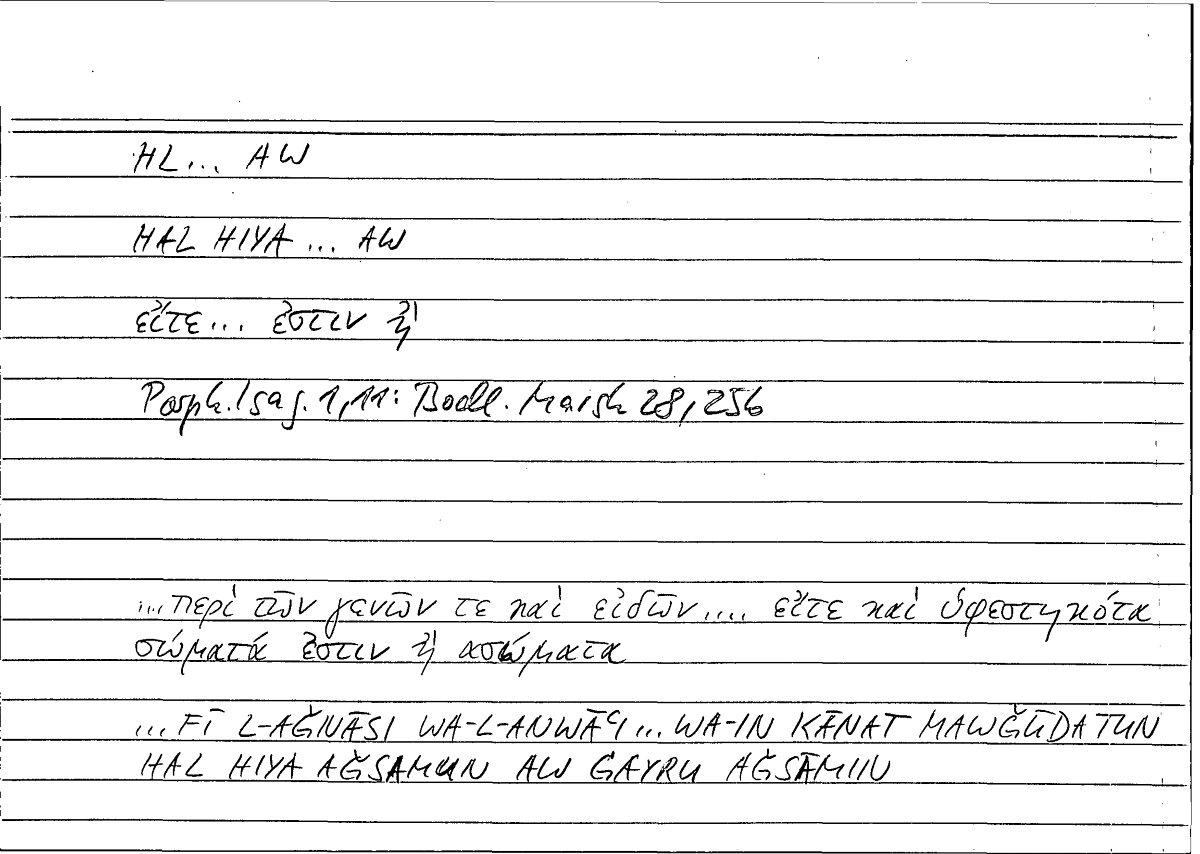 HL... AW
HAL HIYA ... AW
εἴτε... ἐστιν ἢ
Porph. Isag. 1,11: Bodl. Marsh 28,256
...περὶ τῶν γενῶν τε καὶ εἰδῶν.... εἴτε καὶ ὑφεστηκότα
σώματά ἐστιν ἢ ασώματα
...FĪ L-AǦNĀSI WA-L-ANWĀʿI... WA-IN KĀNAT MAWǦŪDATUN
HAL HIYA AǦSAMUN AW ĠAYRU AǦSĀMIN